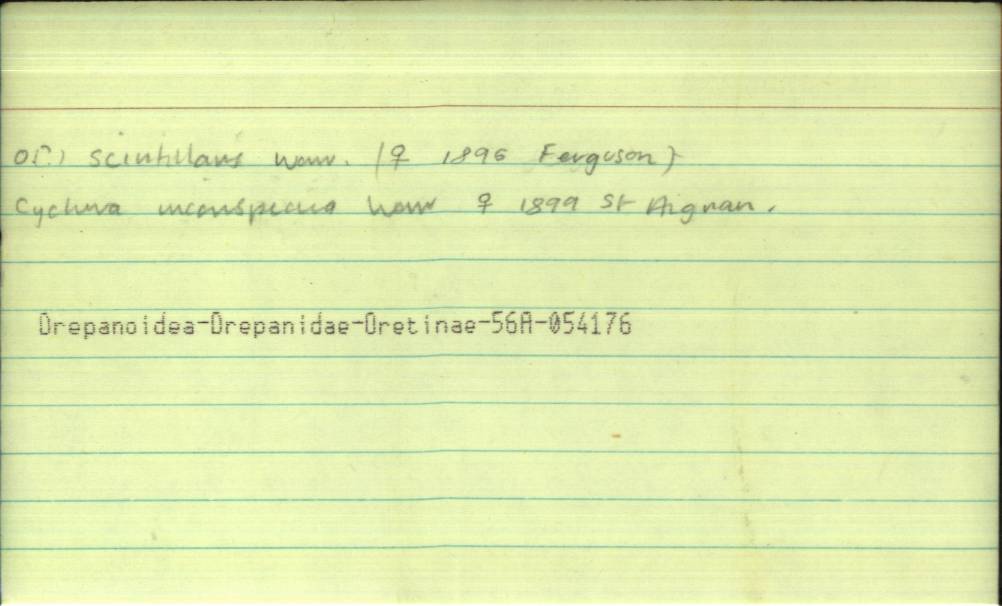 scintillans Warr. (♀ 1896 Ferguson)
Cyclura inconspicua Warr ♀ 1899 St Aignan.
Drepanoidea-Drepanidae-Oretinae-56A-054176